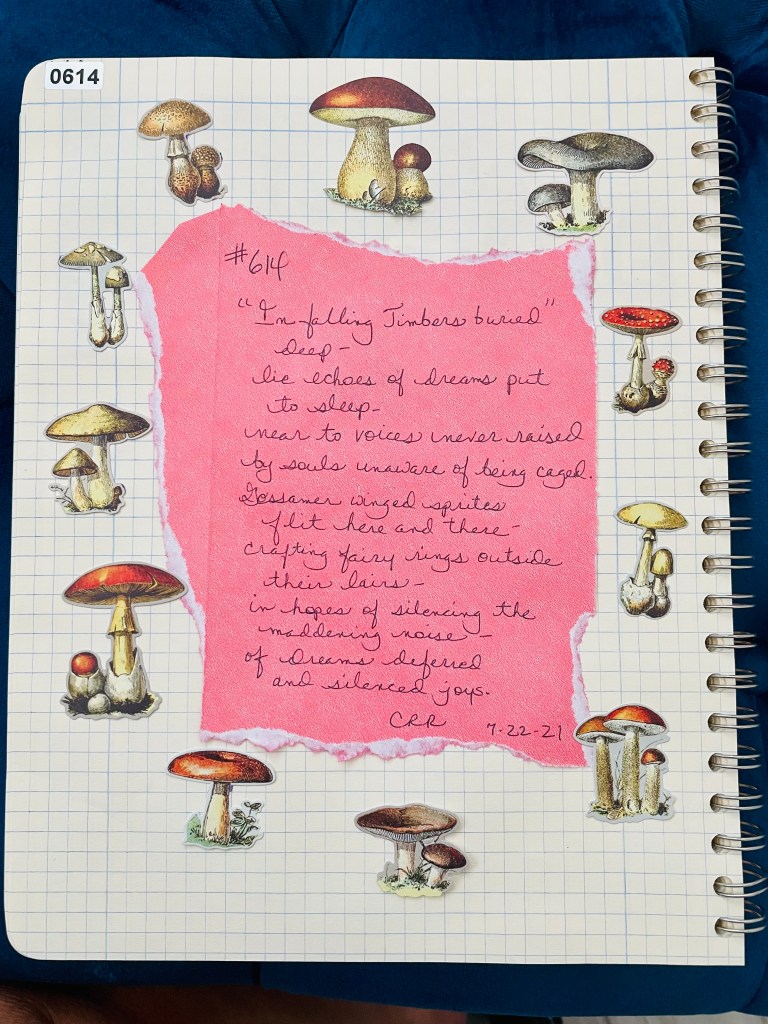 0614
#614
"In falling Timbers buried"
deep -
lie echoes of dreams put
to sleep -
near to voices never raised
by souls unaware of being caged.
Gossamer winged sprites
flit here and there -
crafting fairy rings outside
their lairs -
in hopes of silencing the
maddening noise -
of dreams deferred
and silenced joys.
CRR 7-22-21